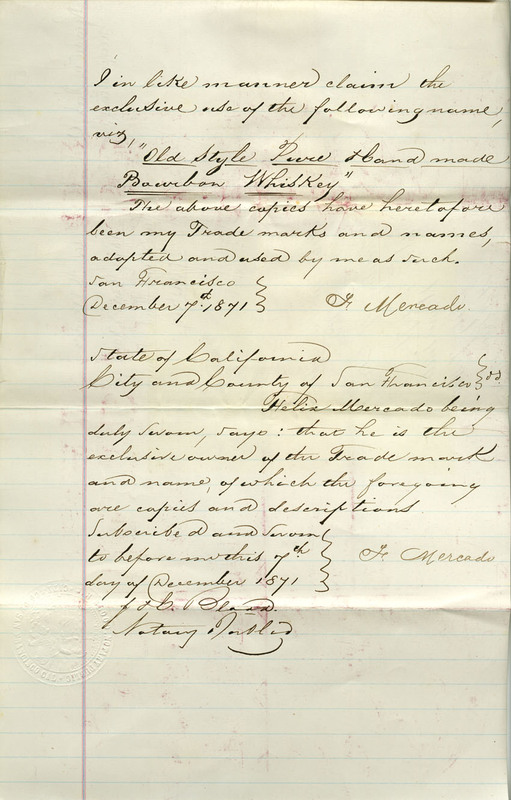 I in like manner claim the
exclusive use of the following name,
viz,
"Old Style Pure Hand made
Bourbon Whiskey"
The above copies have heretofore
been my Trade marks and names,
adopted and used by me as such.
San Francisco
December 7th 1871 F. Mercado.
State of California
City and County of San Francisco } ss.
Felix Mercado being
duly sworn, says: that he is the
exclusive owner of the Trade mark
and name, of which the foregoing
are copies and descriptions
Subscribed and sworn
to before me this 7th F. Mercado
day of December 1871
Notary Public